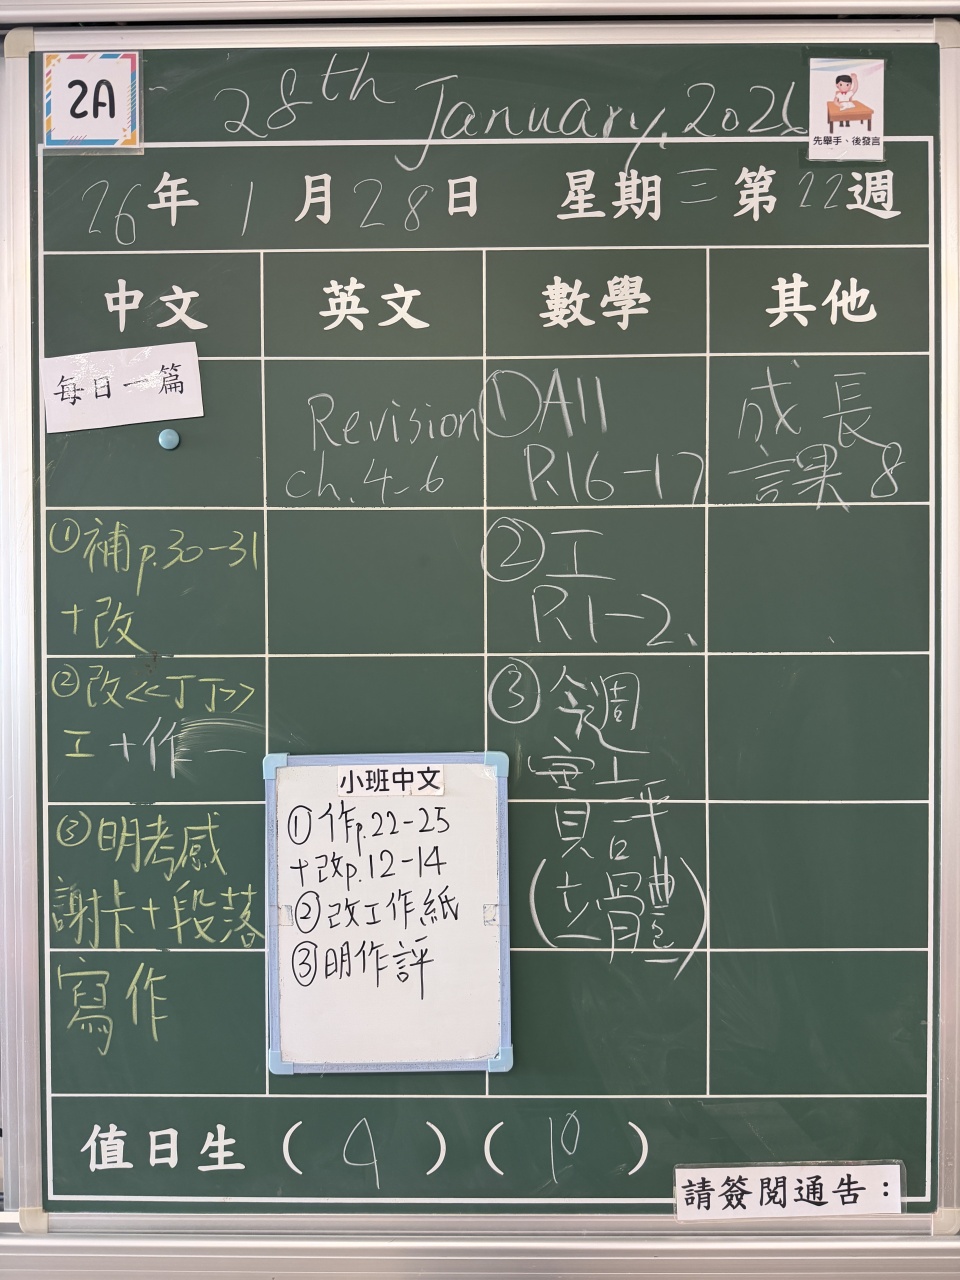 2A
28th January, 2026
先舉手、後發言
26年1月28日 星期三第22週
中文 英文 數學 其他
每日一篇
①補p.30-31
+改
②改<<丁丁>>
工+作一
③明考感
謝卡+段落
寫作
Revision
ch.4-6
小班中文
①作p.22-25
+改p.12-14
②改工作紙
③明作評
①All
R16-17
②工
R1-2、
③今週
實上評
(立體)
成長
課8
值日生(4)(10)
請簽閱通告：